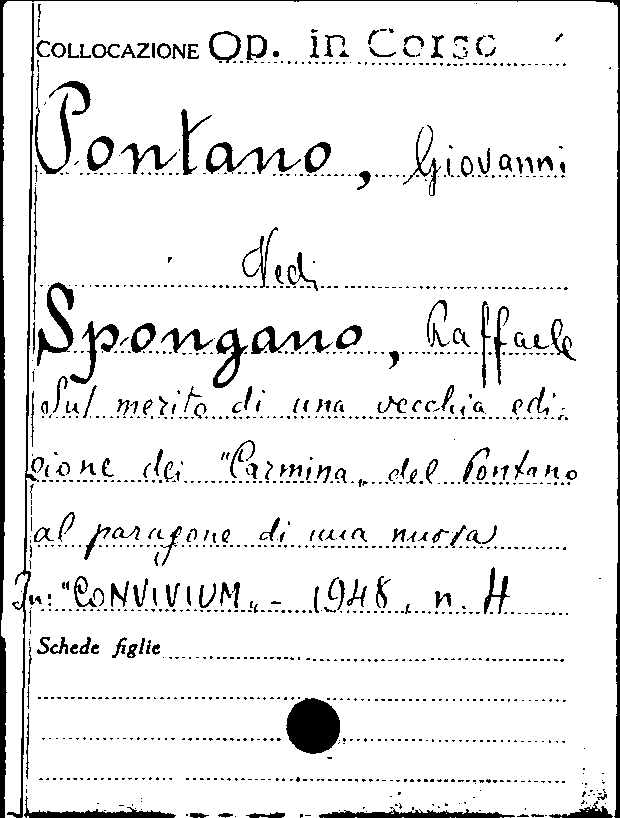 COLLOCAZIONE Op. in Corso
Pontano, Giovanni
Vedi
Spongano, Raffaele
Sul merito di una vecchia edi-
zione dei "Carmina" del Pontano
al paragone di una nuova
In: "CONVIVIUM" - 1948, n. 4
Schede figlie